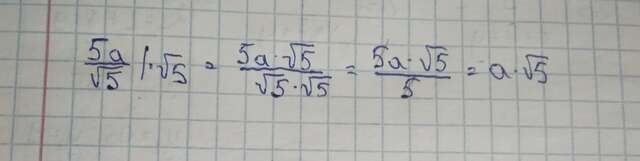 5a/√5 |·√5 = 5a·√5/√5·√5 = 5a·√5/5 = a·√5